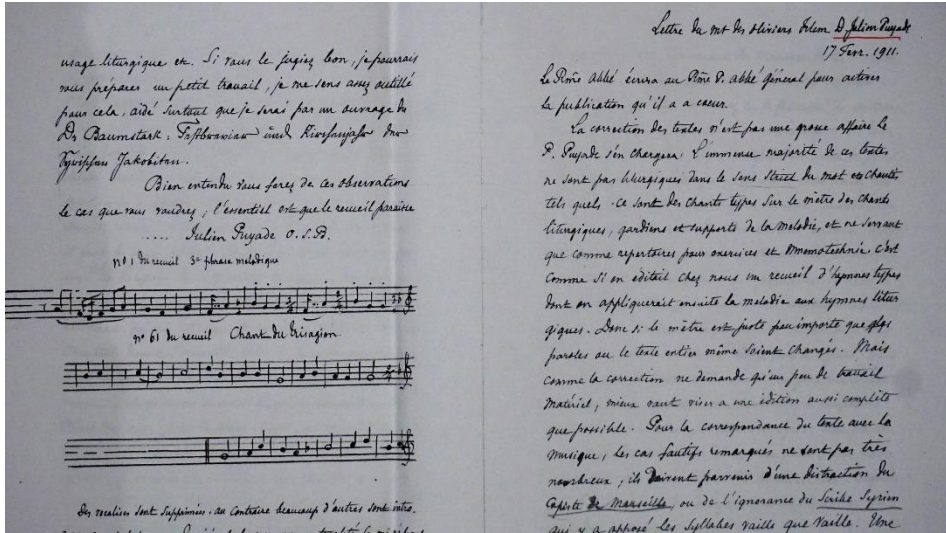 usage liturgique etc. Si vous le jugiez bon, je pourrais
vous préparer un petit travail, je me sens assez outillé
pour cela, aidé surtout que je serai par un ouvrage du
Dr Baumstark : Festbrevier und Kirchenjahr der
Syrischen Jakobiten.
Bien entendu vous ferez de ces observations
le cas que vous voudrez ; l'essentiel est que le recueil paraisse
..... Julien Puyade O.S.B.
n° 1 du recueil 3e phrase mélodique
n° 61 du recueil Chant du Trisagion
Des vocalises sont supprimées. au contraire beaucoup d'autres sont intro-
Lettre du mt des oliviers Jslem D. Julien Puyade
17 Fevr. 1911.
Le Rme abbé écrira au Rme P. abbé général pour activer
la publication qu'il a a cœur.
La correction des textes n'est pas une grosse affaire le
P. Puyade s'en chargera. L'immense majorité de ces textes
ne sont pas liturgiques dans le sens strict du mot et chantés
tels quels. Ce sont des chants types sur le mètre des chants
liturgiques, gardiens et supports de la mélodie, et ne servant
que comme repertoires pour exercices et mnemotechnie. C'est
comme si on éditait chez nous un recueil d'hymnes types
dont on appliquerait ensuite la mélodie aux hymnes litur
giques. Donc si le mètre est juste peu importe que des
paroles ou le texte entier même soient changés. Mais
comme la correction ne demande qu'un peu de travail
matériel, mieux vaut viser a une édition aussi complète
que possible. Pour la correspondance du texte avec la
musique, les cas fautifs remarqués ne sont pas très
nombreux ; ils doivent provenir d'une distraction du
Copiste de Marseille ou de l'ignorance du Scribe Syrien
qui y a apposé les syllabes vaille que vaille. Une